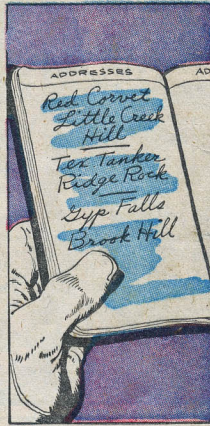 ADDRESSES
AD
Red Corvet
Little Creek
Hill
Tex Tanker
Ridge Rock
Gyp Falls
Brook Hill